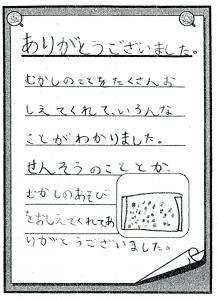 ありがとうございました。
むかしのことをたくさんお
しえてくれて、いろんな
ことがわかりました。
せんそうのこととか、
むかしのあそび
をおしえてくれてあ
りがとうございました。